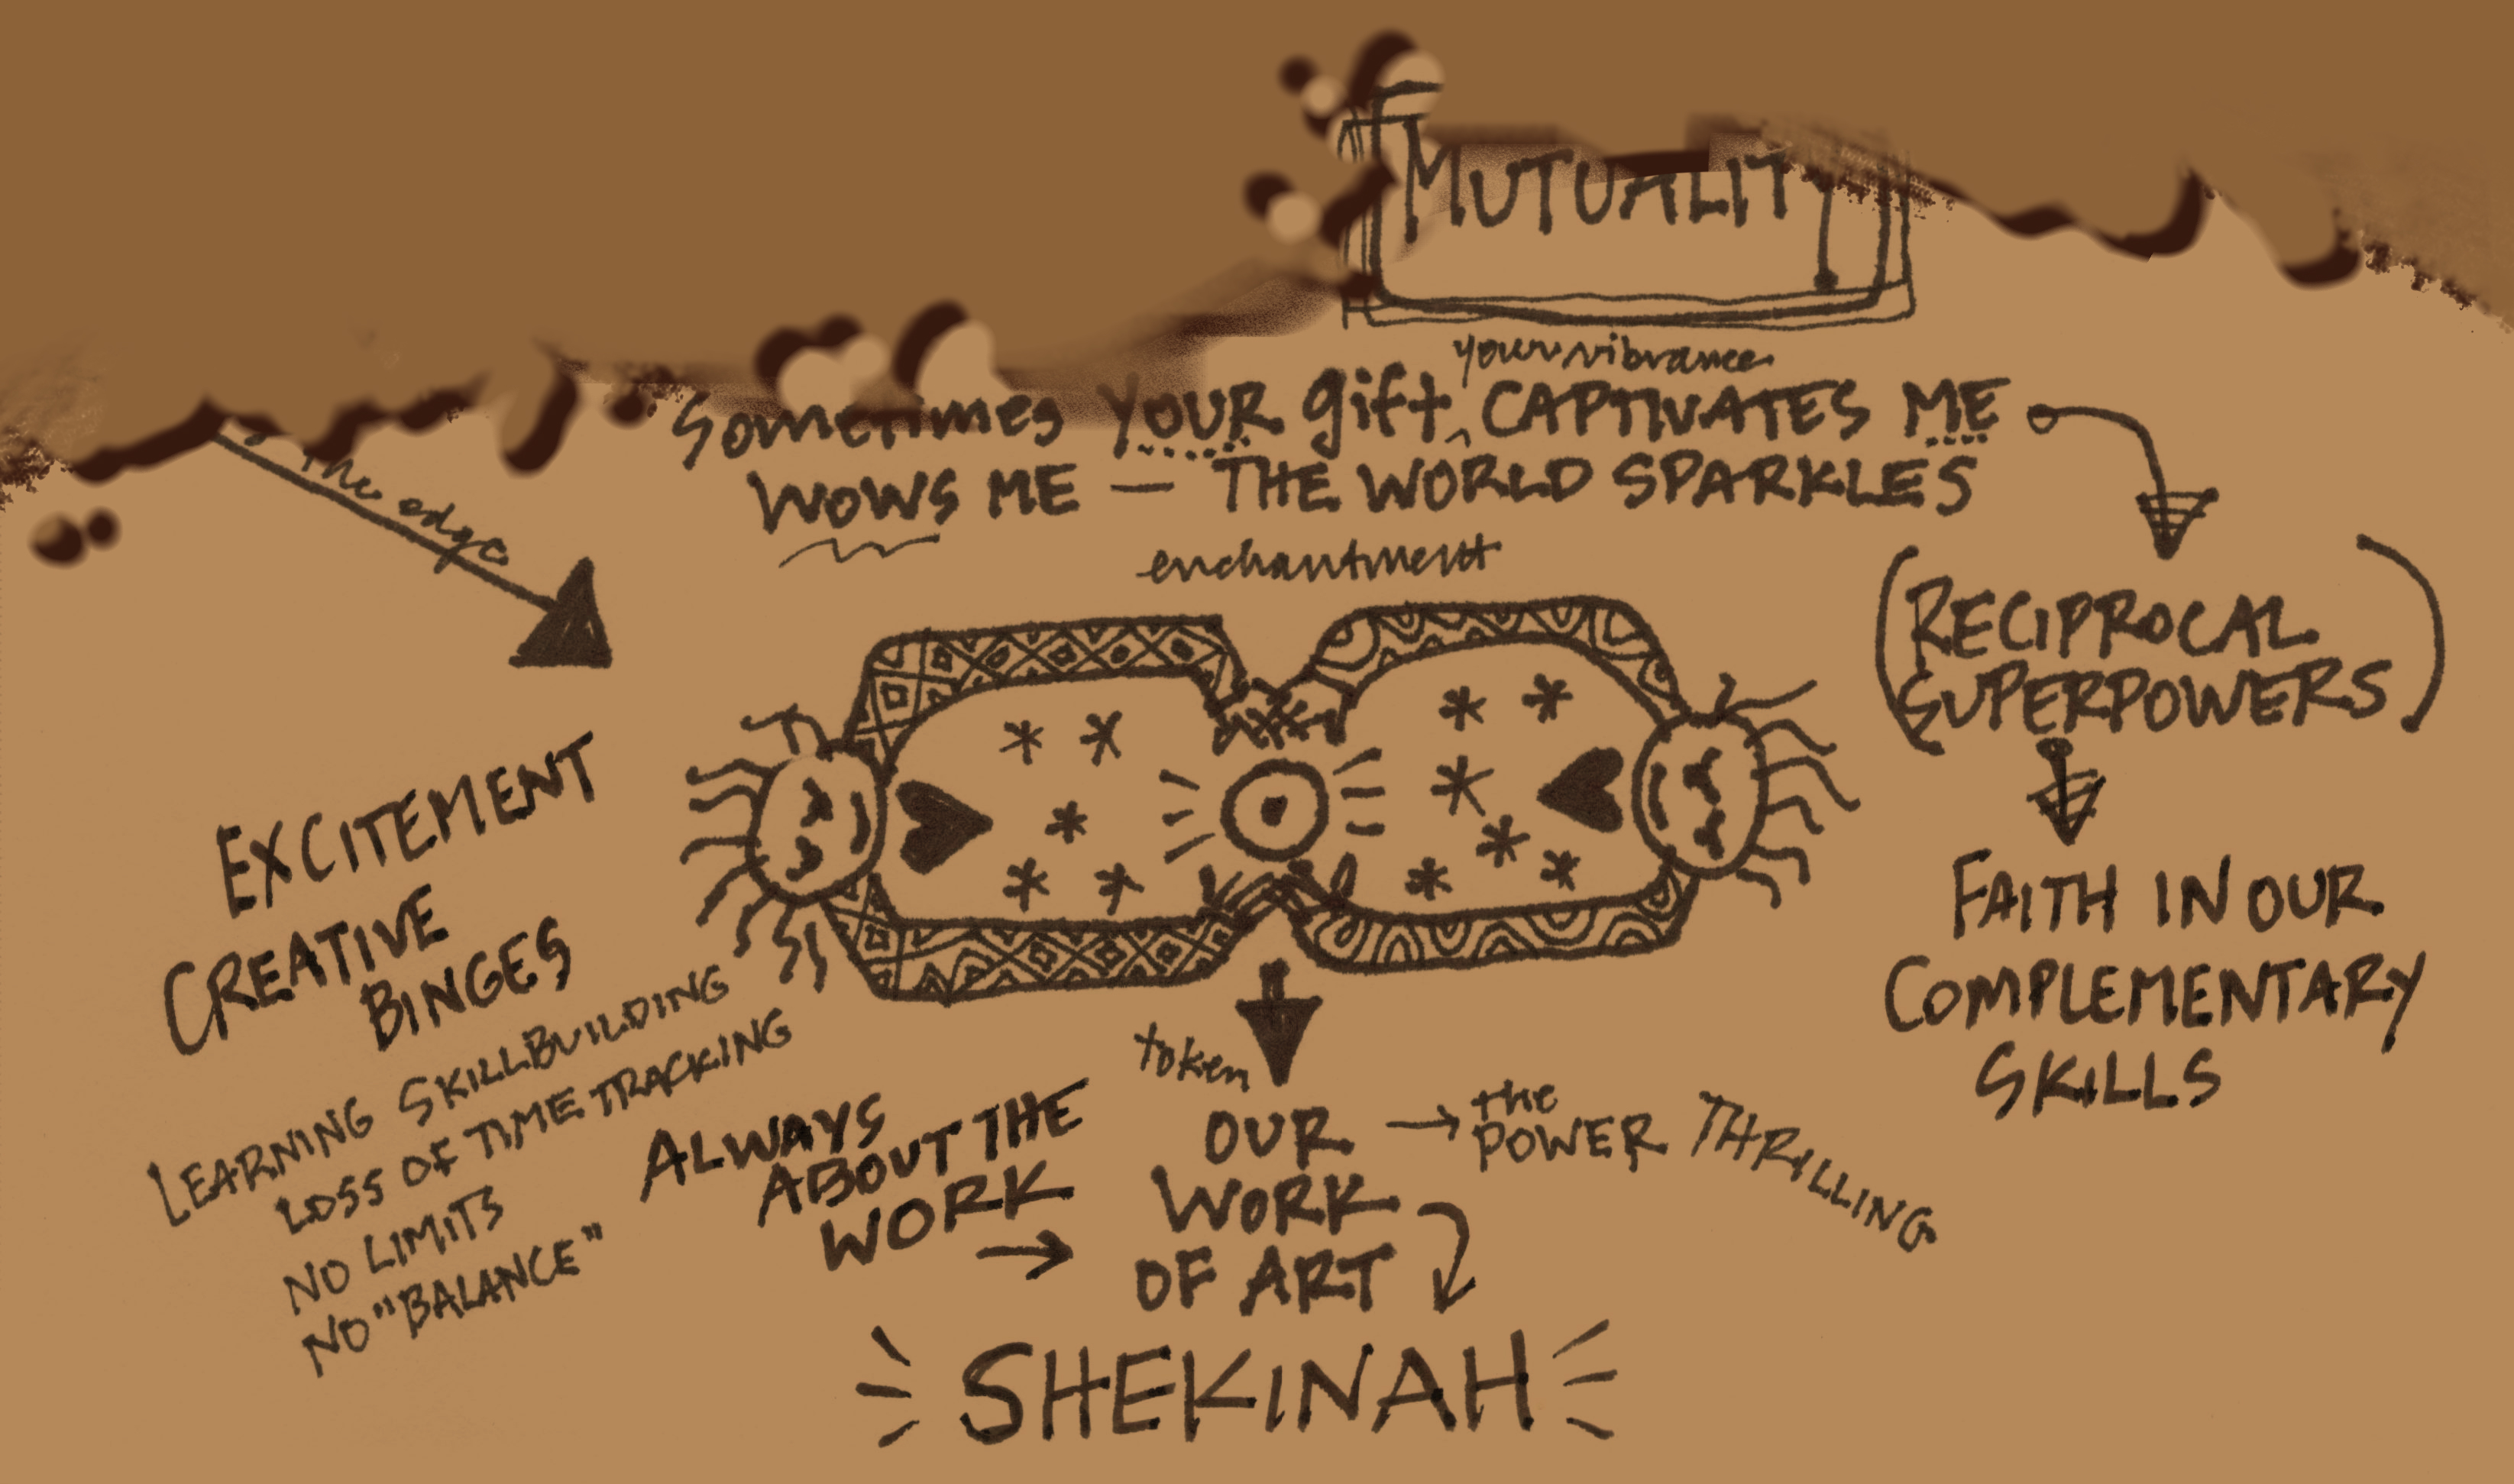 MUTUALITY
your vibrance
Sometimes YOUR gift ^ CAPTIVATES ME
WOWS ME — THE WORLD SPARKLES
enchantment
the edge
(RECIPROCAL
SUPERPOWERS)
FAITH IN OUR
COMPLEMENTARY
SKILLS
EXCITEMENT
CREATIVE
BINGES
LEARNING SKILLBUILDING
LOSS OF TIME TRACKING
NO LIMITS
NO "BALANCE"
ALWAYS
ABOUT THE
WORK →
token
OUR
WORK
OF ART
→ the
POWER THRILLING
SHEKINAH